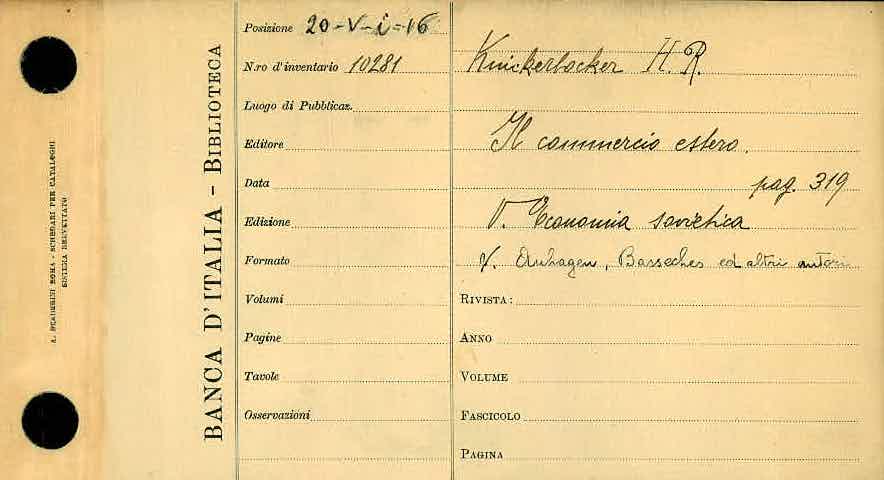 A. STADERINI ROMA - SCHEDARI PER CATALOGHI
SISTEMA BREVETTATO
BANCA D'ITALIA - BIBLIOTECA
Posizione 20-V-i-16
N.ro d'inventario 10281
Luogo di Pubblicaz.
Editore
Data
Edizione
Formato
Volumi
Pagine
Tavole
Osservazioni
Knickerbocker H. R.
Il commercio estero.
pag. 319
V. Economia sovietica
V. Auhagen, Basseches ed altri autori
RIVISTA:
ANNO
VOLUME
FASCICOLO
PAGINA